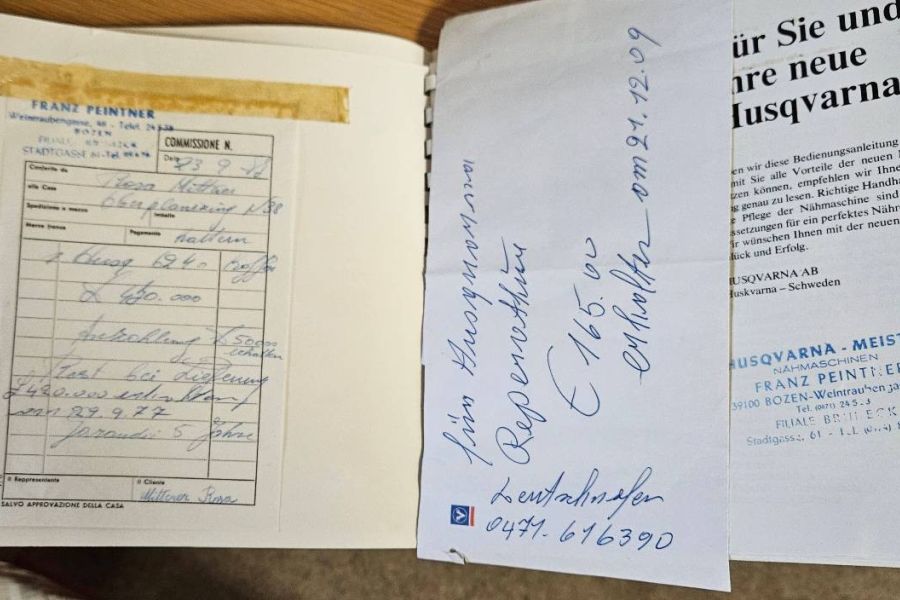 FRANZ PEINTNER
Weintraubengasse, 46 - Telef. 24 5 39
BOZEN
FILIALE
STADTGASSE 61-Tel.
COMMISSIONE N.
Data 23 9 77
Conferita da
alla Casa
Oberplanitzing N 38
Spedizione a mezzo
Imballo
Merce franca
Pagamento
Kaltern
1 Husq 6240 Koffer
£ 470.000
Anzahlung £ 50000
erhalten
Rest bei Lieferung
£ 420.000 erhalten
am 29.9.77
5 Jahre
Il Rappresentante
Il Cliente
Mitterer Rosa
SALVO APPROVAZIONE DELLA CASA
für Husqvarna
Reperathur
€ 165.00
erhalten am 21.12.09
Deutschnofen
0471-616390
für Sie und
Ihre neue
Husqvarna
en wir diese Bedienungsanleitung
mit Sie alle Vorteile der neuen
tzen können, empfehlen wir Ihne
g genau zu lesen. Richtige Handha
Pflege der Nähmaschine sind
ssetzungen für ein perfektes Nähr
ir wünschen Ihnen mit der neuen
lück und Erfolg.
HUSQVARNA AB
Huskvarna – Schweden
HUSQVARNA - MEIST
NÄHMASCHINEN
FRANZ PEINTNER
39100 BOZEN-Weintraubengas
Tel. (0471) 24 5
FILIALE BRUNECK
Stadtgasse, 61 -